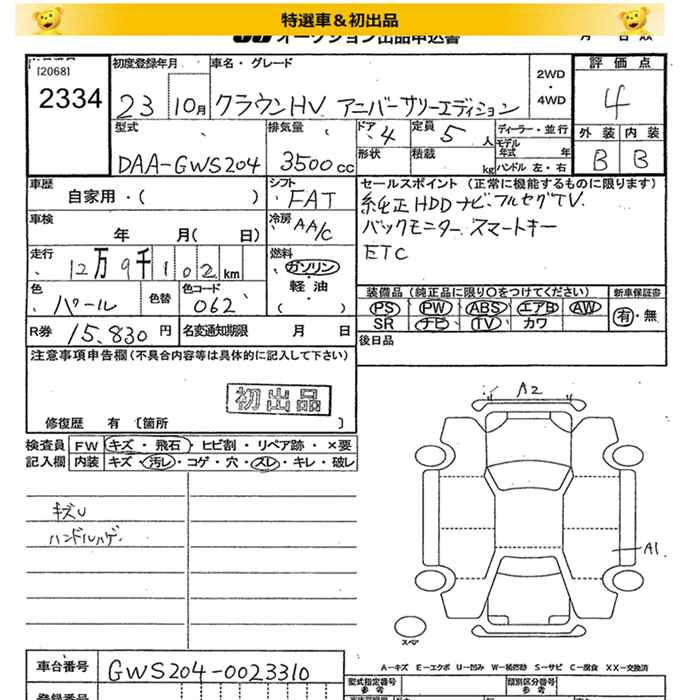 特選車&初出品
オークション出品申込書
月 日
[2068]
2334
初度登録年月
23 10月
車名・グレード
クラウンHV アニバーサリーエディション
2WD
・
4WD
評価点
4
外装 内装
B B
型式
DAA-GWS204
排気量
3500cc
ドア 4
形状
定員 5 人
積載 kg
ディーラー・並行
モデル年式 年
ハンドル 左・右
車歴
自家用・( )
シフト
FAT
セールスポイント (正常に機能するものに限ります)
純正HDDナビ・フルセグTV
バックモニター スマートキー
ETC
車検
年 月( 日)
冷房
AA/C
走行
12万9千102km
燃料
ガソリン
・
軽油
・
( )
色
パール
色替
色コード
062
装備品 (純正品に限り○をつけてください)
PS PW ABS エアB AW
SR ナビ TV カワ
新車保証書
有・無
R券 15,830円
名変通知期限 月 日
後日品
注意事項申告欄(不具合内容等は具体的に記入して下さい)
初出品
修復歴 有 〔箇所 〕
検査員記入欄
FW キズ・飛石・ヒビ割・リペア跡・×要
内装 キズ・汚レ・コゲ・穴・スレ・キレ・破レ
キズU
ハンドルハゲ
A2
A1
スペア
A-キズ E-エクボ U-凹み W-補修跡 S-サビ C-腐食 XX-交換済
車台番号 GWS204-0023310
型式指定番号
参考
類別区分番号
参考
登録番号